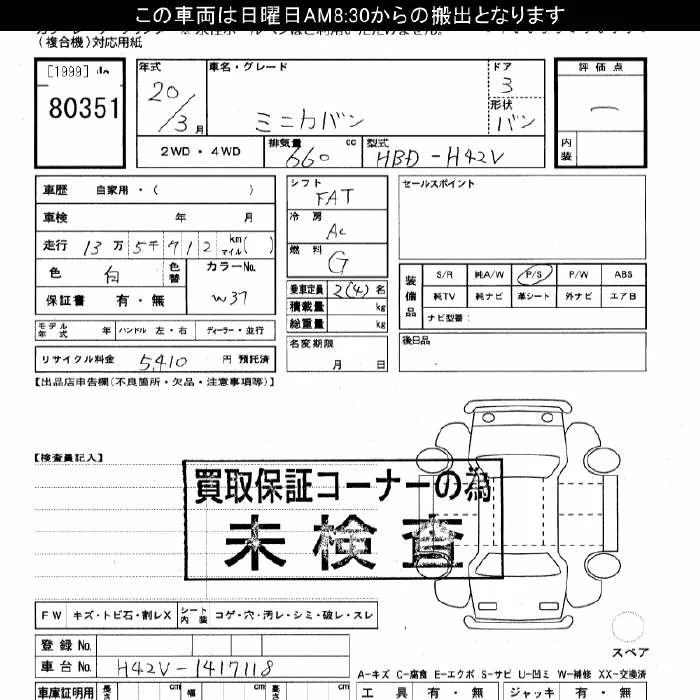 この車両は日曜日AM8:30からの搬出となります
(複合機)対応用紙
[1999]
80351
年式 20/3月
車名・グレード ミニカバン
ドア 3
形状 バン
評価点 一
内装
2WD・4WD
排気量 660 cc
型式 HBD-H42V
車歴 自家用・( )
車検 年 月
走行 13万5千912 km マイル( )
色 白 色替 カラーNo. W37
保証書 有・無
モデル年式 年 ハンドル 左・右 ディーラー・並行
リサイクル料金 5,410 円 預託済
シフト FAT
冷房 AC
燃料 G
乗車定員 2(4)名
積載量 kg
総重量 kg
名変期限 月 日
セールスポイント
装備品
S/R 純A/W P/S P/W ABS
純TV 純ナビ 革シート 外ナビ エアB
ナビ型番:
後日品
【出品店申告欄(不良箇所・欠品・注意事項等)】
【検査員記入】
買取保証コーナーの為
未検査
FW キズ・トビ石・割レX シート内装 コゲ・穴・汚レ・シミ・破レ・スレ
スペア
登録No.
車台No. H42V-1417118
A-キズ C-腐食 E-エクボ S-サビ U-凹ミ W-補修 XX-交換済
車庫証明用 長さ cm 幅 cm 高さ cm
工具 有・無 ジャッキ 有・無